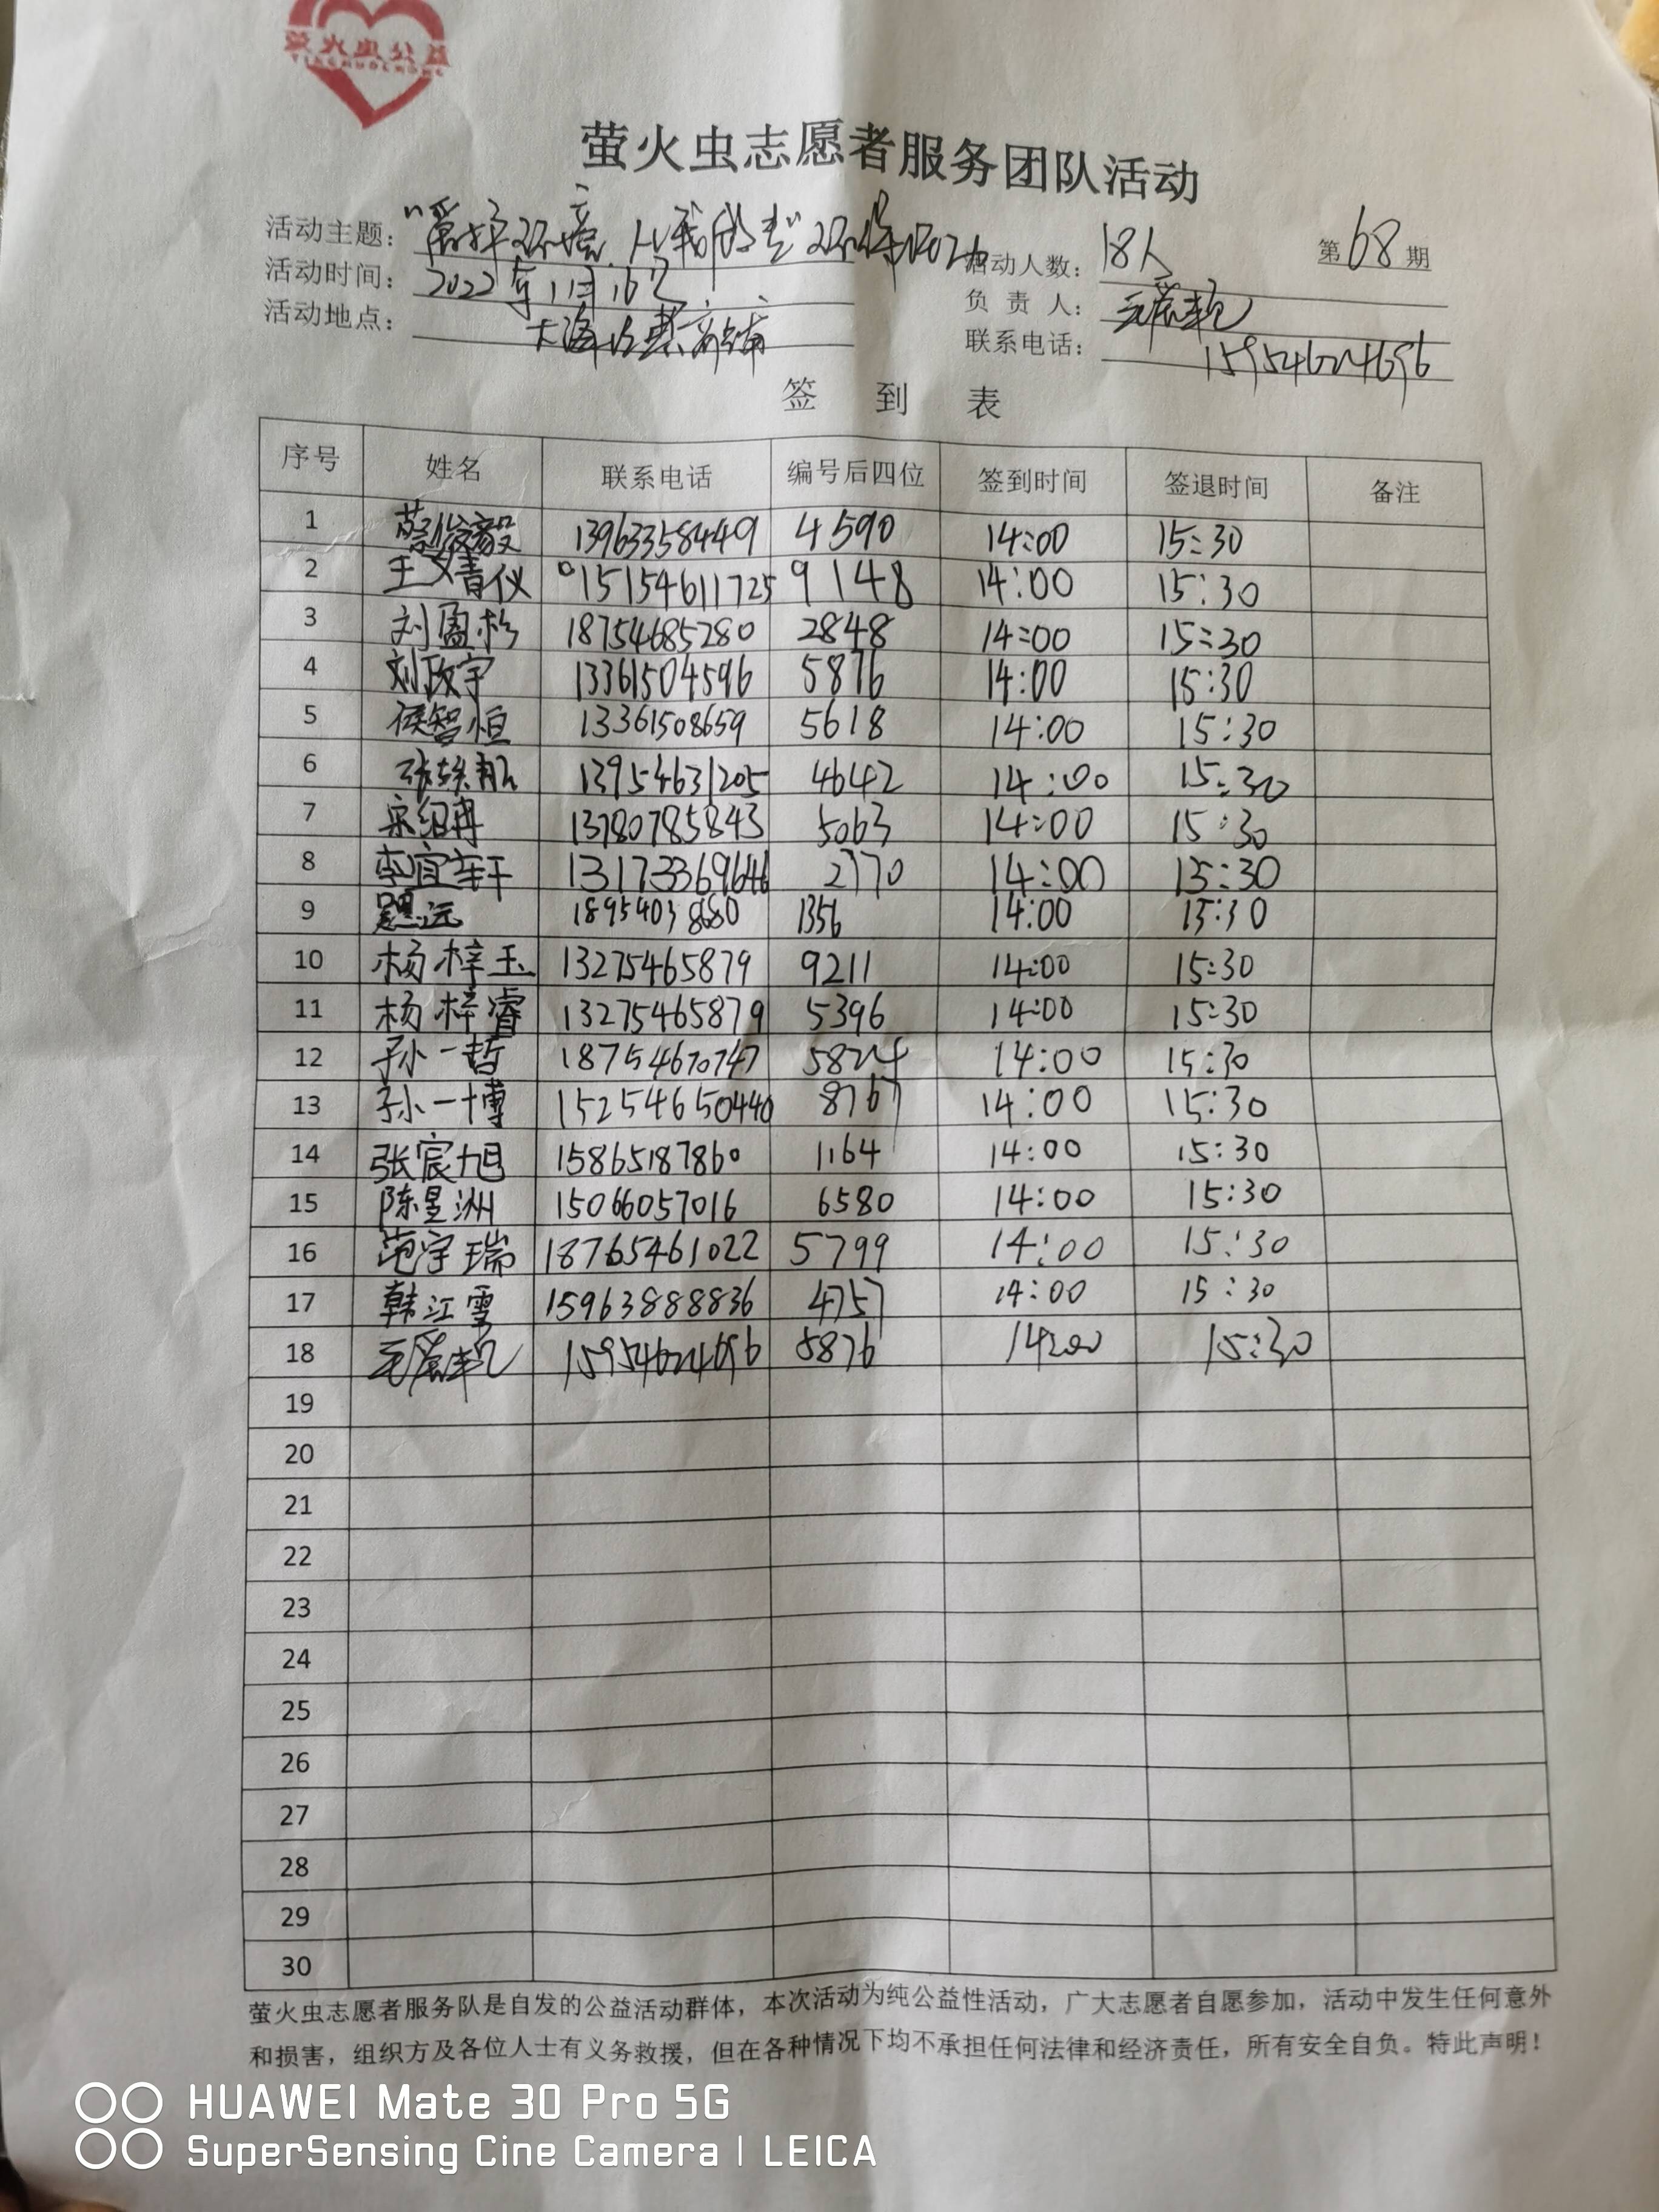 萤火虫公益
YINGHUOCHONG
萤火虫志愿者服务团队活动
活动主题：“爱护环境，从我做起”环保活动
活动人数：18人 第68期
活动时间：2022年11月16日
负责人：
活动地点：
联系电话：15954624696
签 到 表
序号 姓名 联系电话 编号后四位 签到时间 签退时间 备注
1 蔡俊毅 13963358449 4590 14:00 15:30
2 王文菁仪 15154611725 9148 14:00 15:30
3 刘盈杉 18754685280 2848 14:00 15:30
4 刘政宇 13361504596 5876 14:00 15:30
5 侯智恒 13361508659 5618 14:00 15:30
6 13954631205 4642 14:00 15:30
7 宋绍冉 13780785843 5063 14:00 15:30
8 李宜轩 13173369646 2770 14:00 15:30
9 1895403 1356 14:00 15:30
10 杨梓玉 13275465879 9211 14:00 15:30
11 杨梓睿 13275465879 5396 14:00 15:30
12 孙一哲 18754670747 5824 14:00 15:30
13 孙一博 15254650440 8767 14:00 15:30
14 张宸旭 15865187860 1164 14:00 15:30
15 陈星洲 15066057016 6580 14:00 15:30
16 范宇瑞 18765461022 5799 14:00 15:30
17 韩江雪 15963888836 4757 14:00 15:30
18 15954624696 5876 14:00 15:30
19
20
21
22
23
24
25
26
27
28
29
30
萤火虫志愿者服务队是自发的公益活动群体，本次活动为纯公益性活动，广大志愿者自愿参加，活动中发生任何意外
和损害，组织方及各位人士有义务救援，但在各种情况下均不承担任何法律和经济责任，所有安全自负。特此声明！
HUAWEI Mate 30 Pro 5G
SuperSensing Cine Camera | LEICA